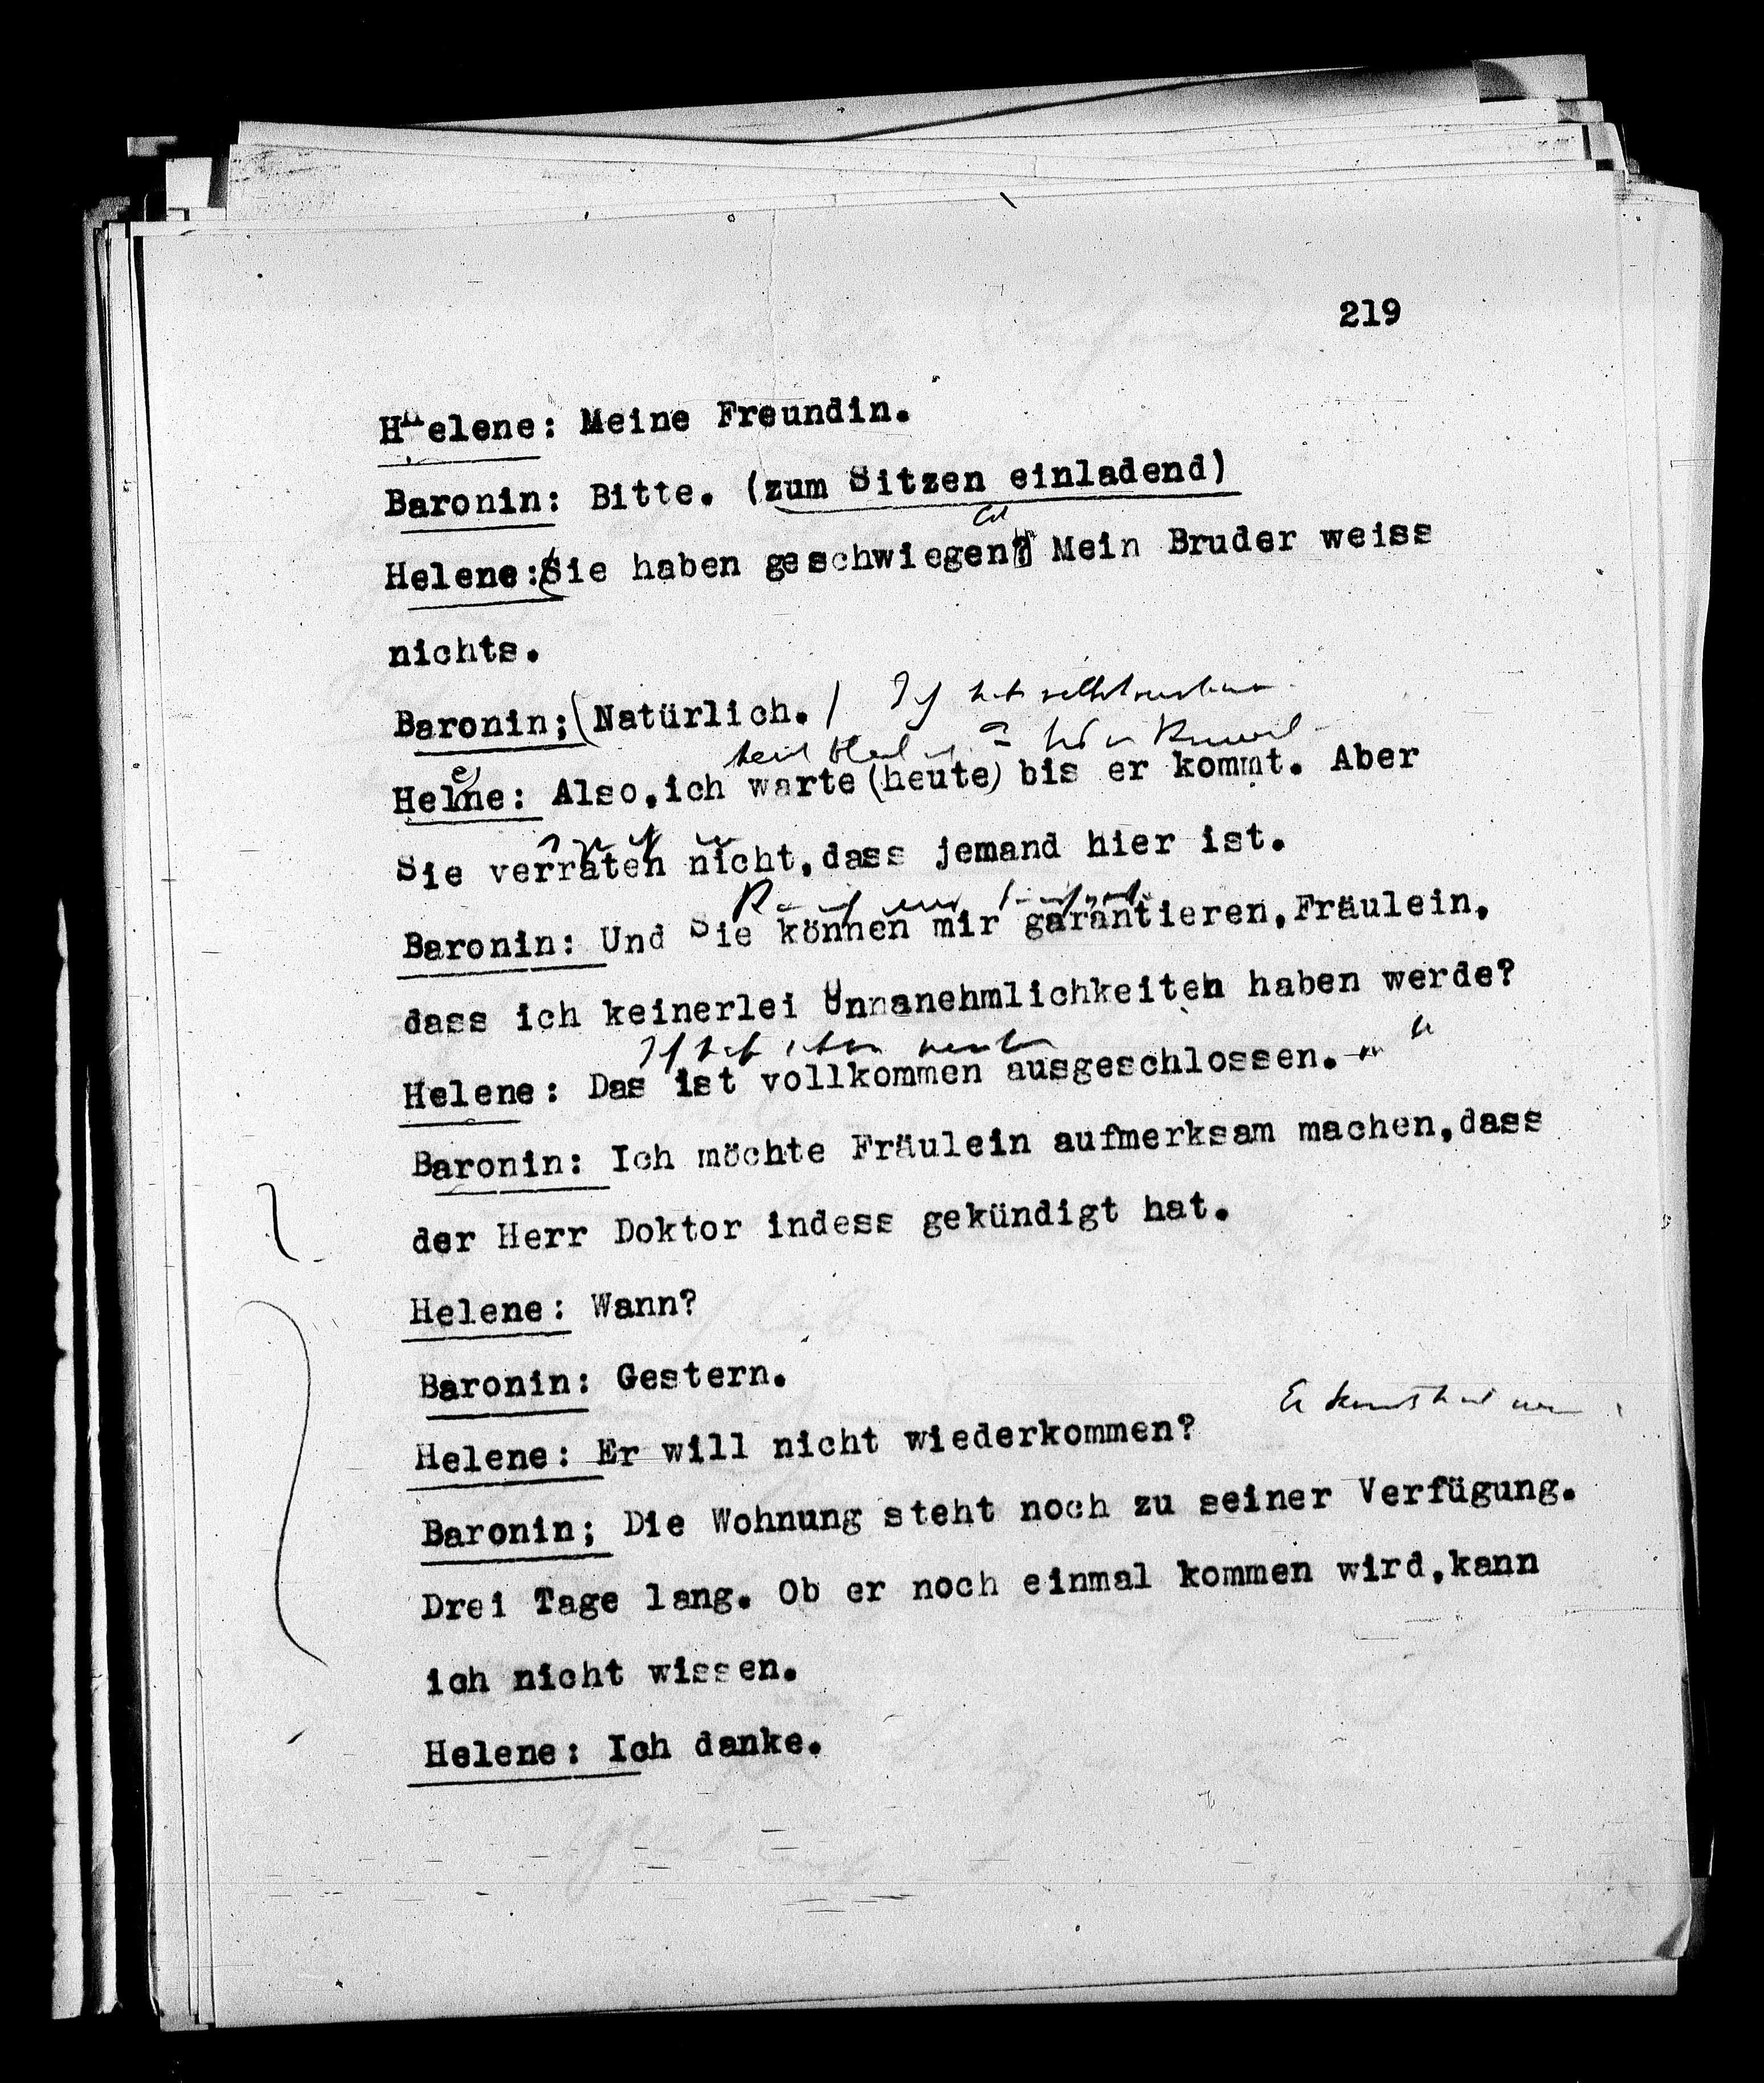 219
Helene: Meine Freundin.
Baronin: Bitte. (zum Sitzen einladend)
Helene: Sie haben geschwiegen? Mein Bruder weiss
nichts.
Baronin; (Natürlich.) Ich
Helene: Also, ich warte (heute) bis er kommt. Aber
Sie verraten nicht, dass jemand hier ist.
Baronin: Und Sie können mir garantieren, Fräulein,
dass ich keinerlei Unnanehmlichkeiten haben werde?
Helene: Das ist vollkommen ausgeschlossen.
Baronin: Ich möchte Fräulein aufmerksam machen, dass
der Herr Doktor indess gekündigt hat.
Helene: Wann?
Baronin: Gestern.
Er
Helene: Er will nicht wiederkommen?
Baronin; Die Wohnung steht noch zu seiner Verfügung.
Drei Tage lang. Ob er noch einmal kommen wird, kann
ich nicht wissen.
Helene: Ich danke.